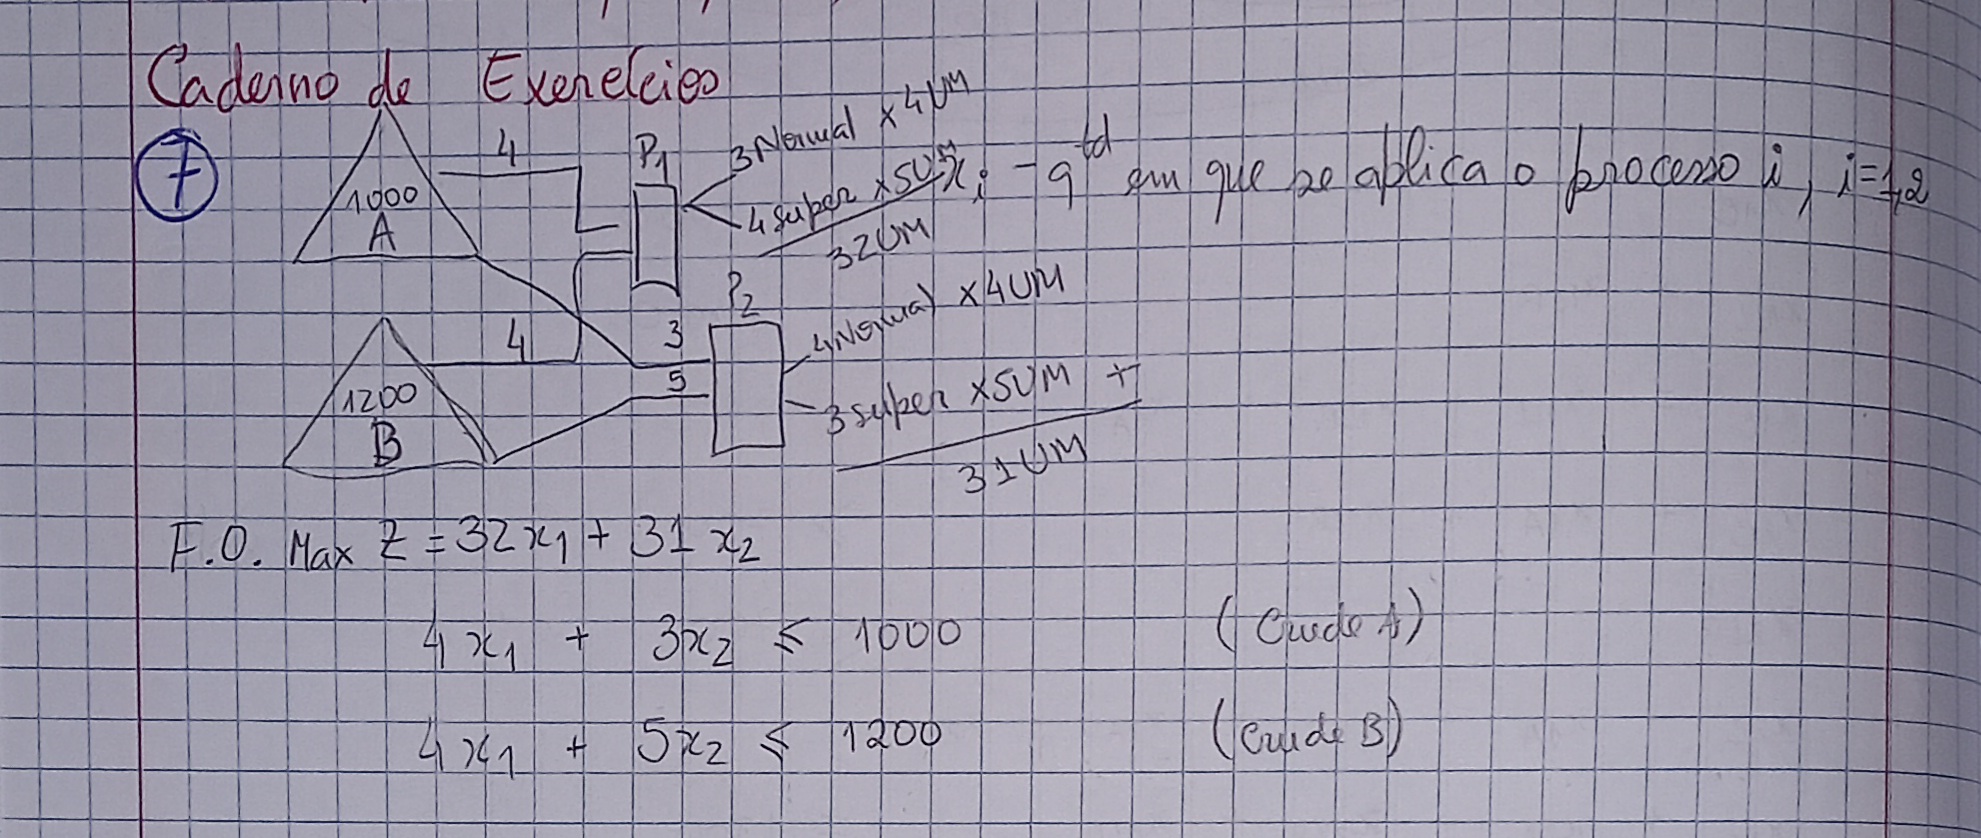 Caderno de Exercícios
7
1000
A
4
P1
3 Normal x 4 UM
4 super x 5 UM
32 UM
xi - qtd em que se aplica o processo i, i=1,2
1200
B
4
3
5
P2
4 Normal x 4 UM
3 super x 5 UM +
31 UM
F.O. Max Z = 32x1 + 31x2
4x1 + 3x2 ≤ 1000 (Crude A)
4x1 + 5x2 ≤ 1200 (Crude B)